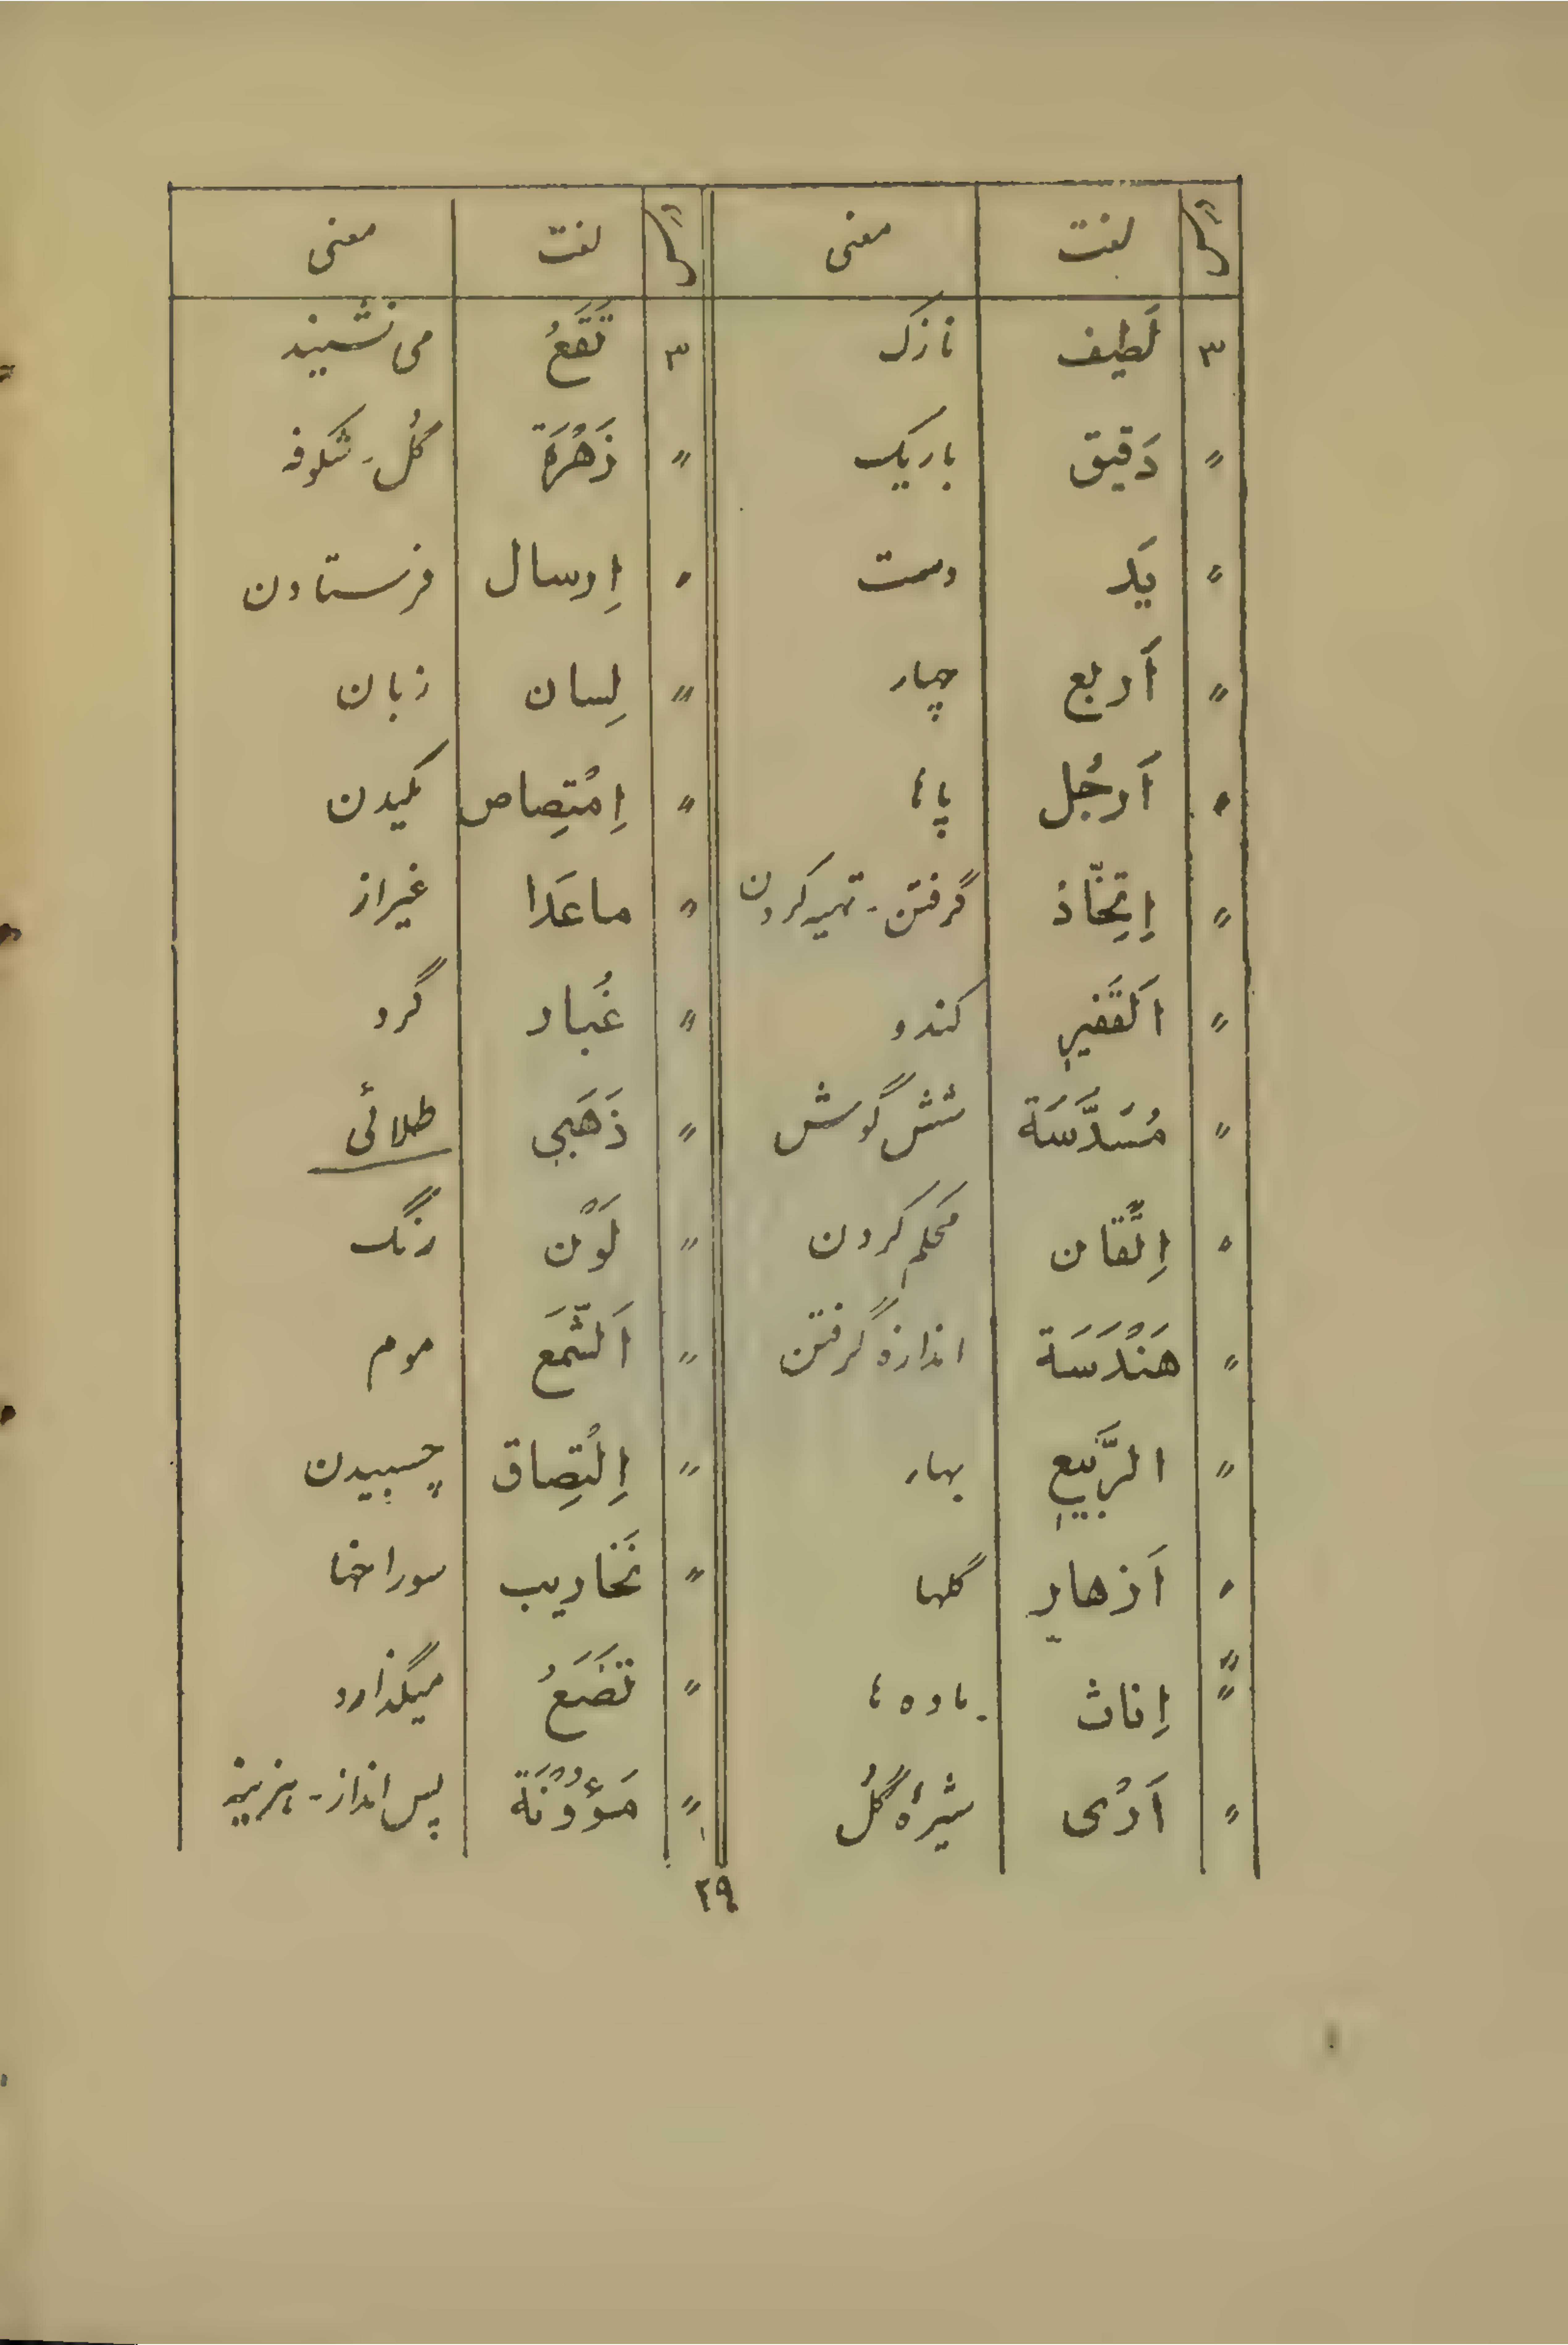 درس لغت معنی درس لغت معنی
۳ لَطیف نازک ۳ تَقَعُ می نشیند
〃 دَقیق باریک 〃 زَهْرَة گُل - شکوفه
〃 یَد دست 〃 اِرسال فرستادن
〃 اَربع چهار 〃 لِسان زبان
〃 اَرجُل پاها 〃 اِمْتِصاص مکیدن
〃 اِتِّخّاذ گرفتن - تهیه کردن 〃 ماعَدا غیراز
〃 اَلقَفیر کندو 〃 غُبار گرد
〃 مُسَدَّسَة شش گوش 〃 ذَهَبی طلائی
〃 اِتْقان محکم کردن 〃 لَوْن رنگ
〃 هَنْدَسَة اندازه گرفتن 〃 اَلشَّمع موم
〃 الرَّبیع بهار 〃 اِلْتِصاق چسبیدن
〃 اَزهار گلها 〃 نَخاریب سوراخها
〃 اِناث ماده ها 〃 تَضَعُ میگذارد
〃 اَرْی شیرهٔ گُل 〃 مَؤُوْنَة پس انداز - هزینه
۲۹